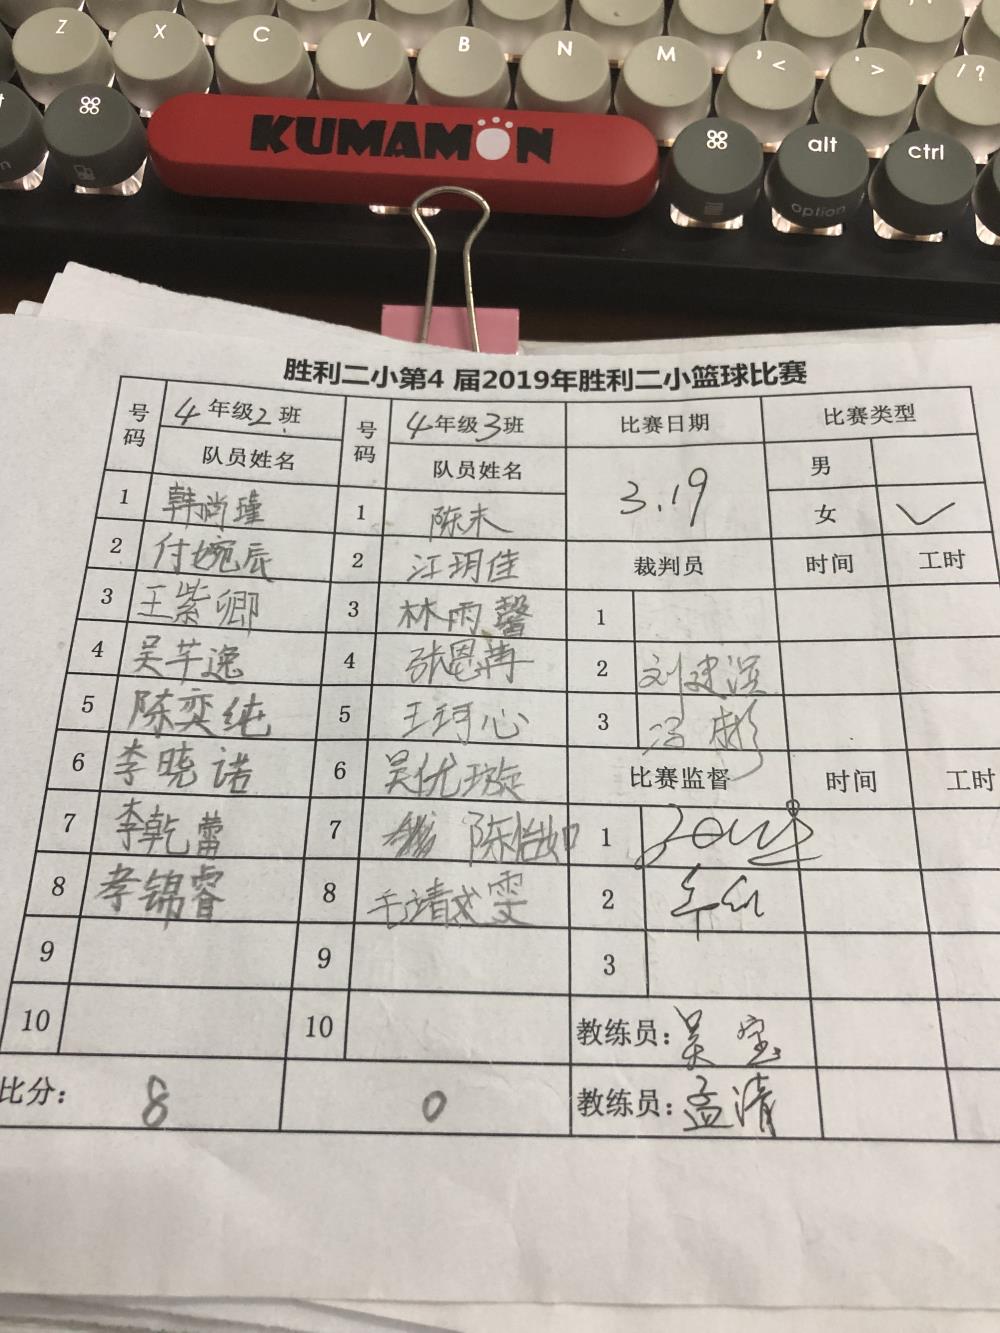 Z X C V B N M , < . > / ?
⌘ KUMAMON ⌘ alt option ctrl
胜利二小第4 届2019年胜利二小篮球比赛
号码 4年级2班 号码 4年级3班 比赛日期 比赛类型
队员姓名 队员姓名 3.19 男
女 ✓
1 韩尚瑾 1 陈末
裁判员 时间 工时
2 付婉辰 2 江玥佳
3 王紫卿 3 林雨馨 1
4 吴芊逸 4 张恩冉 2
5 陈奕纯 5 王珂心 3 冯彬
6 李晓诺 6 吴优璇 比赛监督 时间 工时
7 李乾蕾 7 陈怡如 1
8 李锦睿 8 毛靖雯 2
9 9 3
10 10 教练员:吴宝
比分: 8 0 教练员:孟清